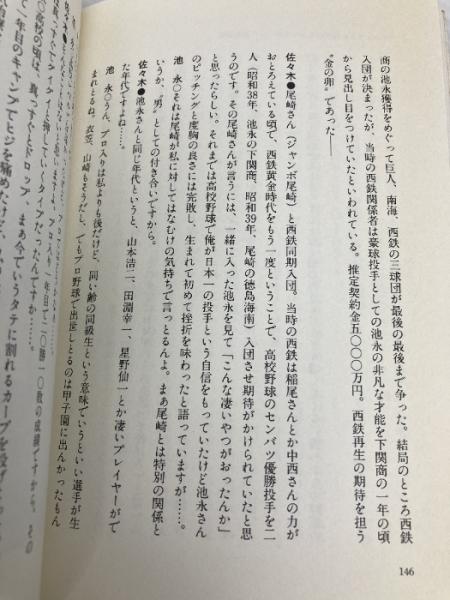 商の池永獲得をめぐって巨人、南海、西鉄の三球団が最後の最後まで争った。結局のところ西鉄
入団が決まったが、当時の西鉄関係者は豪球投手としての池永の非凡な才能を下関商の一年の頃
から見出し目をつけていたといわれている。推定契約金五〇〇〇万円。西鉄再生の期待を担う
〝金の卵〟であった――
佐々木●尾崎さん(ジャンボ尾崎)と西鉄同期入団。当時の西鉄は稲尾さんとか中西さんの力が
おとろえている頃で、西鉄黄金時代をもう一度ということで、高校野球のセンバツ優勝投手を二
人(昭和38年、池永の下関商、昭和39年、尾崎の徳島海南)入団させ期待がかけられていたと思
うのです。その尾崎さんが言うには、一緒に入った池永を見て「こんな凄いやつがおったんか」
と思ったらしい。それまでは高校野球で俺が日本一の投手という自信をもっていたけど池永さん
のピッチングと度胸の良さには完敗し、生まれて初めて挫折を味わったと語っていますが……。
池 永○それは尾崎が私に対してはなむけの気持ちで言っとるんよ。まぁ尾崎とは特別の関係と
いうか、〝男〟としての付き合いですから。
佐々木●池永さんと同じ年代というと、山本浩二、田淵幸一、星野仙一とか凄いプレイヤーがで
た年代ですよね……。
池 永○うん。プロ入りは私よりも後だけど、同い齢の同級生という意味でいうといい選手が生
まれとるね。衣笠、山崎もそうだし。でもプロ野球で出世しとるのは甲子園に出んかったもん
146